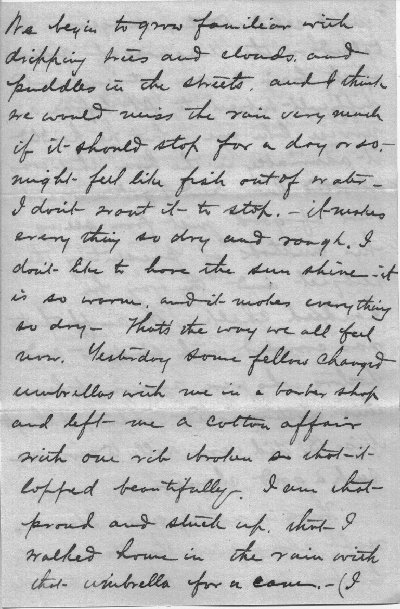 We begin to grow familiar with
dripping trees and clouds. and
puddles in the streets. and I think
we would miss the rain very much
if it should stop for a day or so.-
might feel like fish out of water -
I don't want it to stop. - it makes
every thing so dry and rough. I
don't like to have the sun shine - it
is so warm. and it makes everything
so dry - That's the way we all feel
now. Yesterday some fellow changed
umbrellas with me in a barber shop
and left me a cotton affair
with one rib broken so that it
lopped beautifully. I am that
proud and stuck up. that I
walked home in the rain with
that umbrella for a cane. - (I